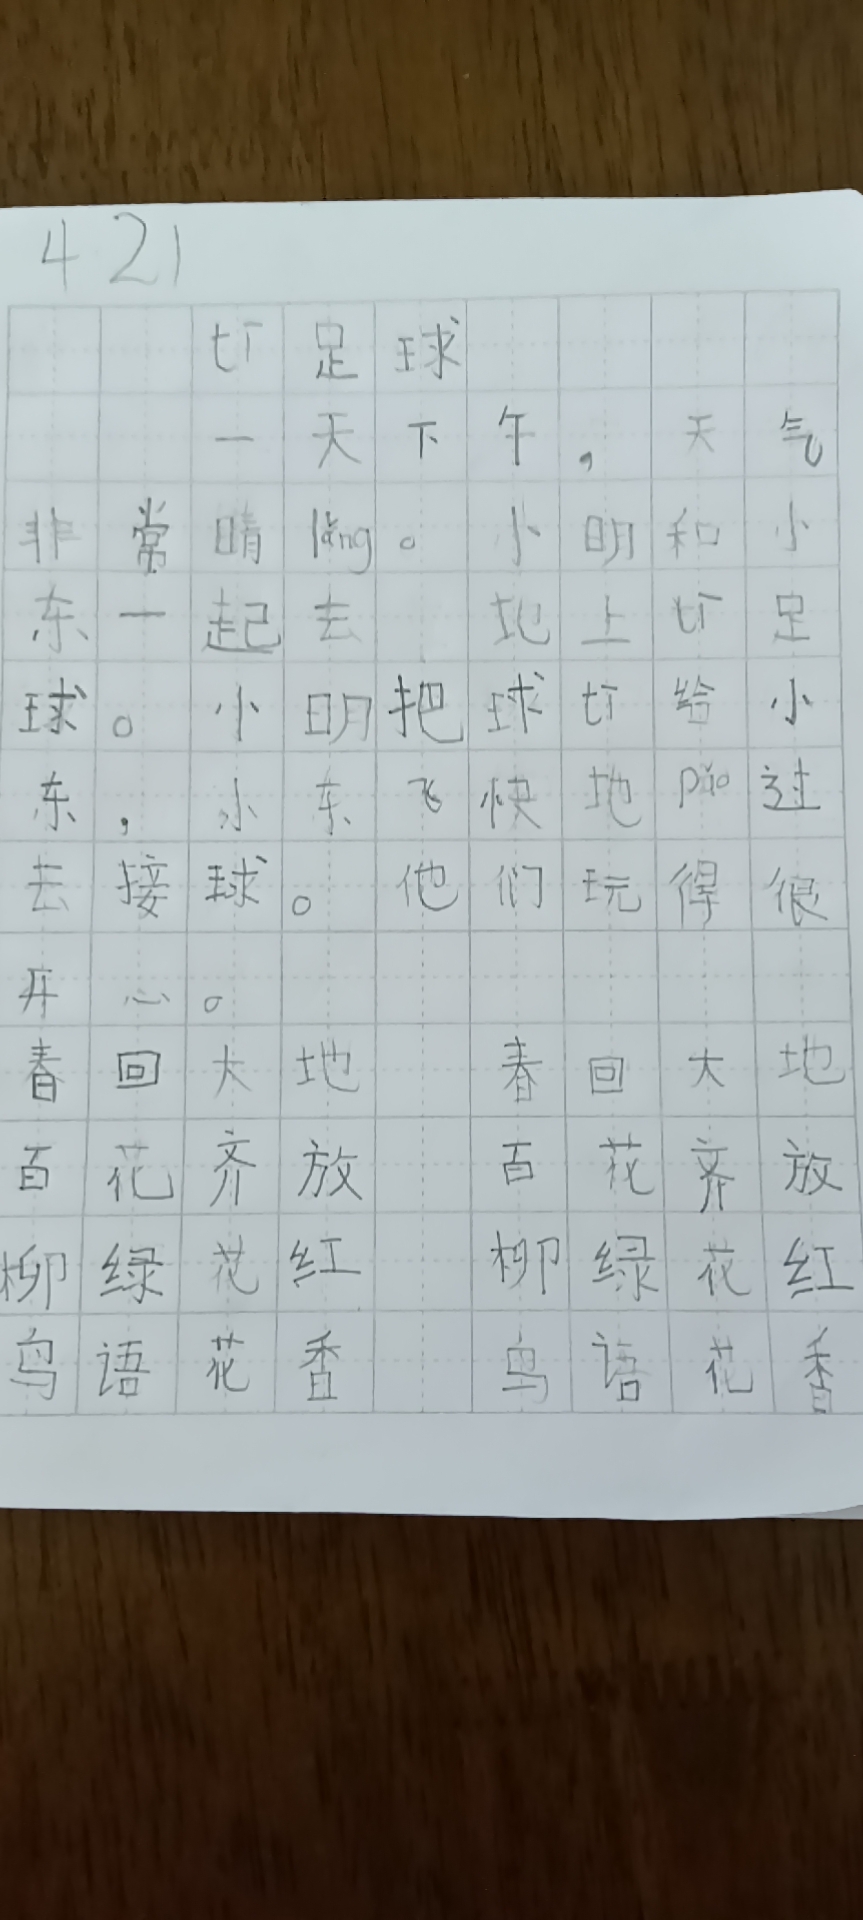 421
tī足球
一天下午，天气
非常晴lǎng。小明和小
东一起去 地上tī足
球。小明把球tī给小
东，小东飞快地pǎo过
去接球。他们玩得很
开心。
春回大地 春回大地
百花齐放 百花齐放
柳绿花红 柳绿花红
鸟语花香 鸟语花香